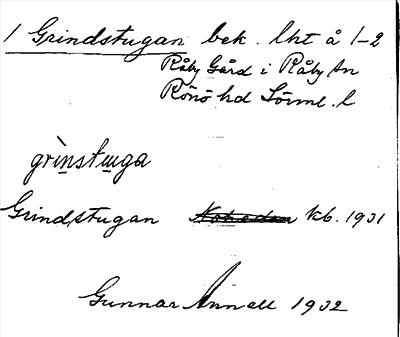 1 Grindstugan bek. lht å 1-2
Råby Gård i Råby sn
Rönö hd Sörml. l
grìnstɯga
Grindstugan kb. 1931
Gunnar Annell 1932